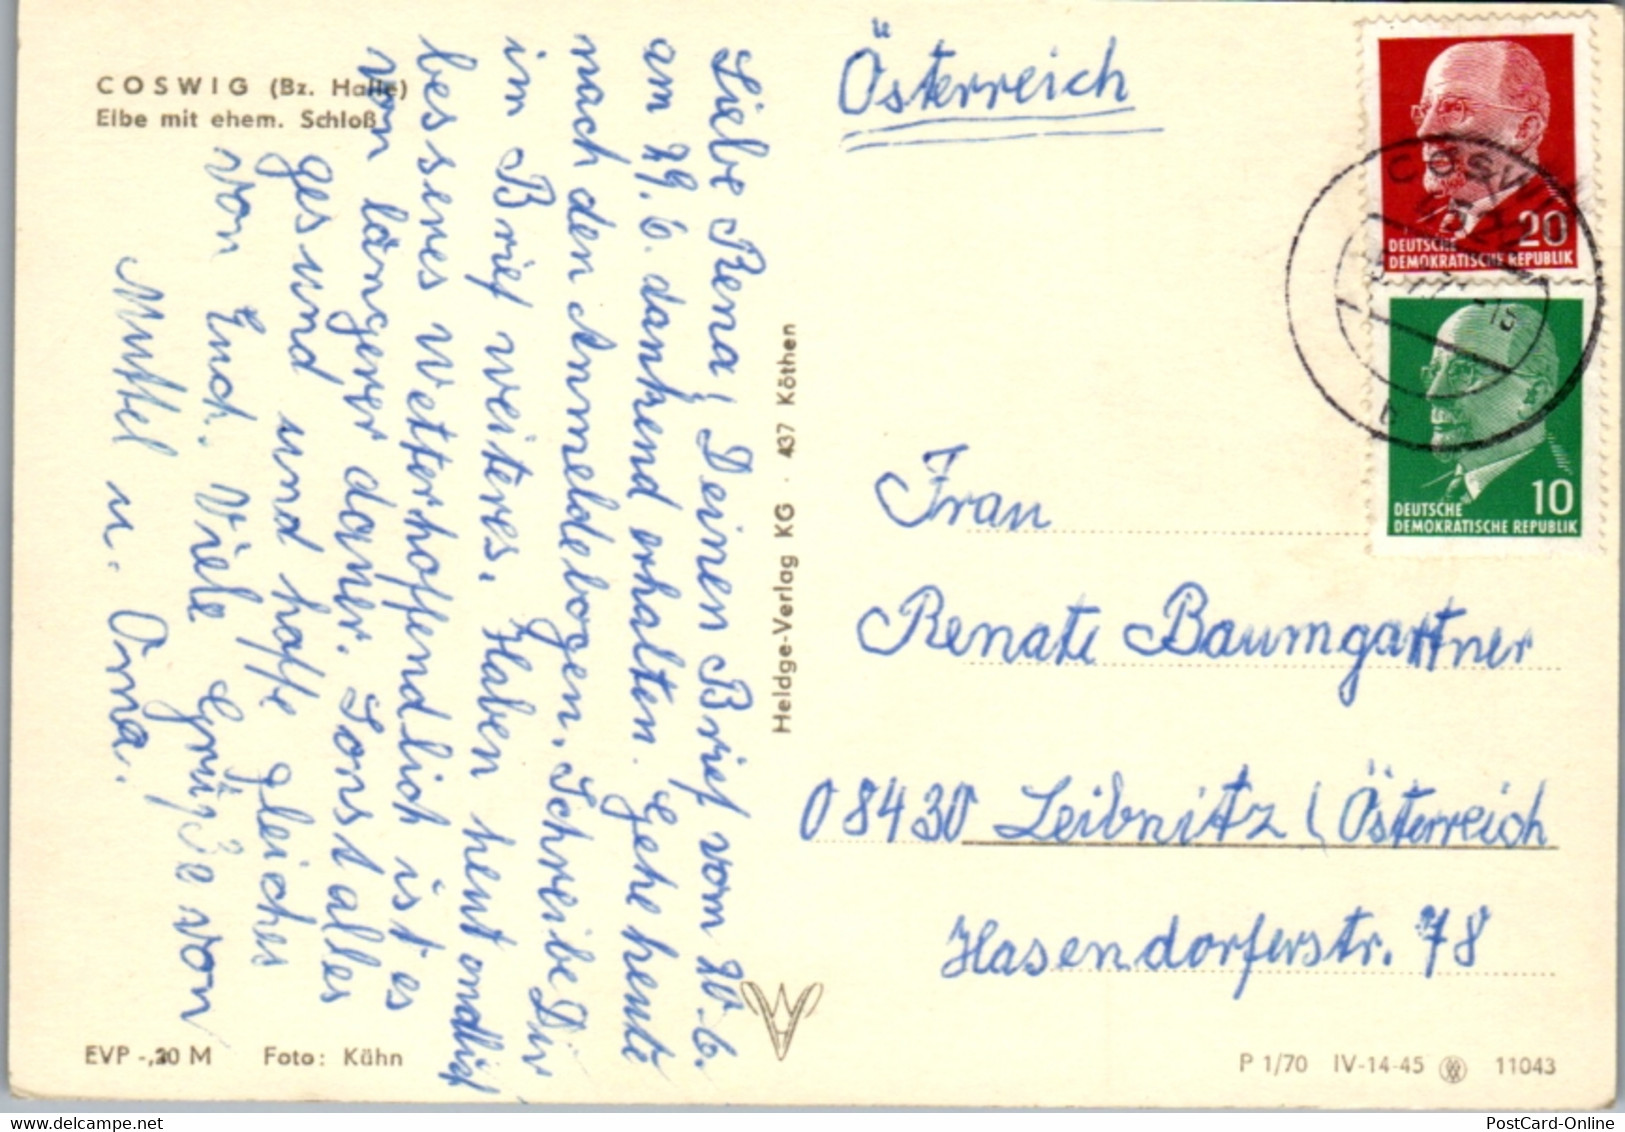 COSWIG (Bz. Halle)
Elbe mit ehem. Schloß
Liebe Rena, Deinen Brief vom 20.6.
am 29.6. dankend erhalten. Gehe heute
nach den Anmeldebogen. Schreibe Dir
im Brief weiteres. Haben heut endlich
besseres Wetter hoffendlich ist es
von längerer dauer. Sonst alles
gesund und hoffe gleiches
von Euch. Viele Grüße von
Muttel u. Oma.
Heldge-Verlag KG · 437 Köthen
EVP -,20 M Foto: Kühn
Österreich
20
DEUTSCHE
DEMOKRATISCHE REPUBLIK
10
DEUTSCHE
DEMOKRATISCHE REPUBLIK
COSWIG
Frau
Renate Baumgartner
08430 Leibnitz / Österreich
Hasendorferstr. 78
P 1/70 IV-14-45 11043
PostCard-Online
www.delcampe.net